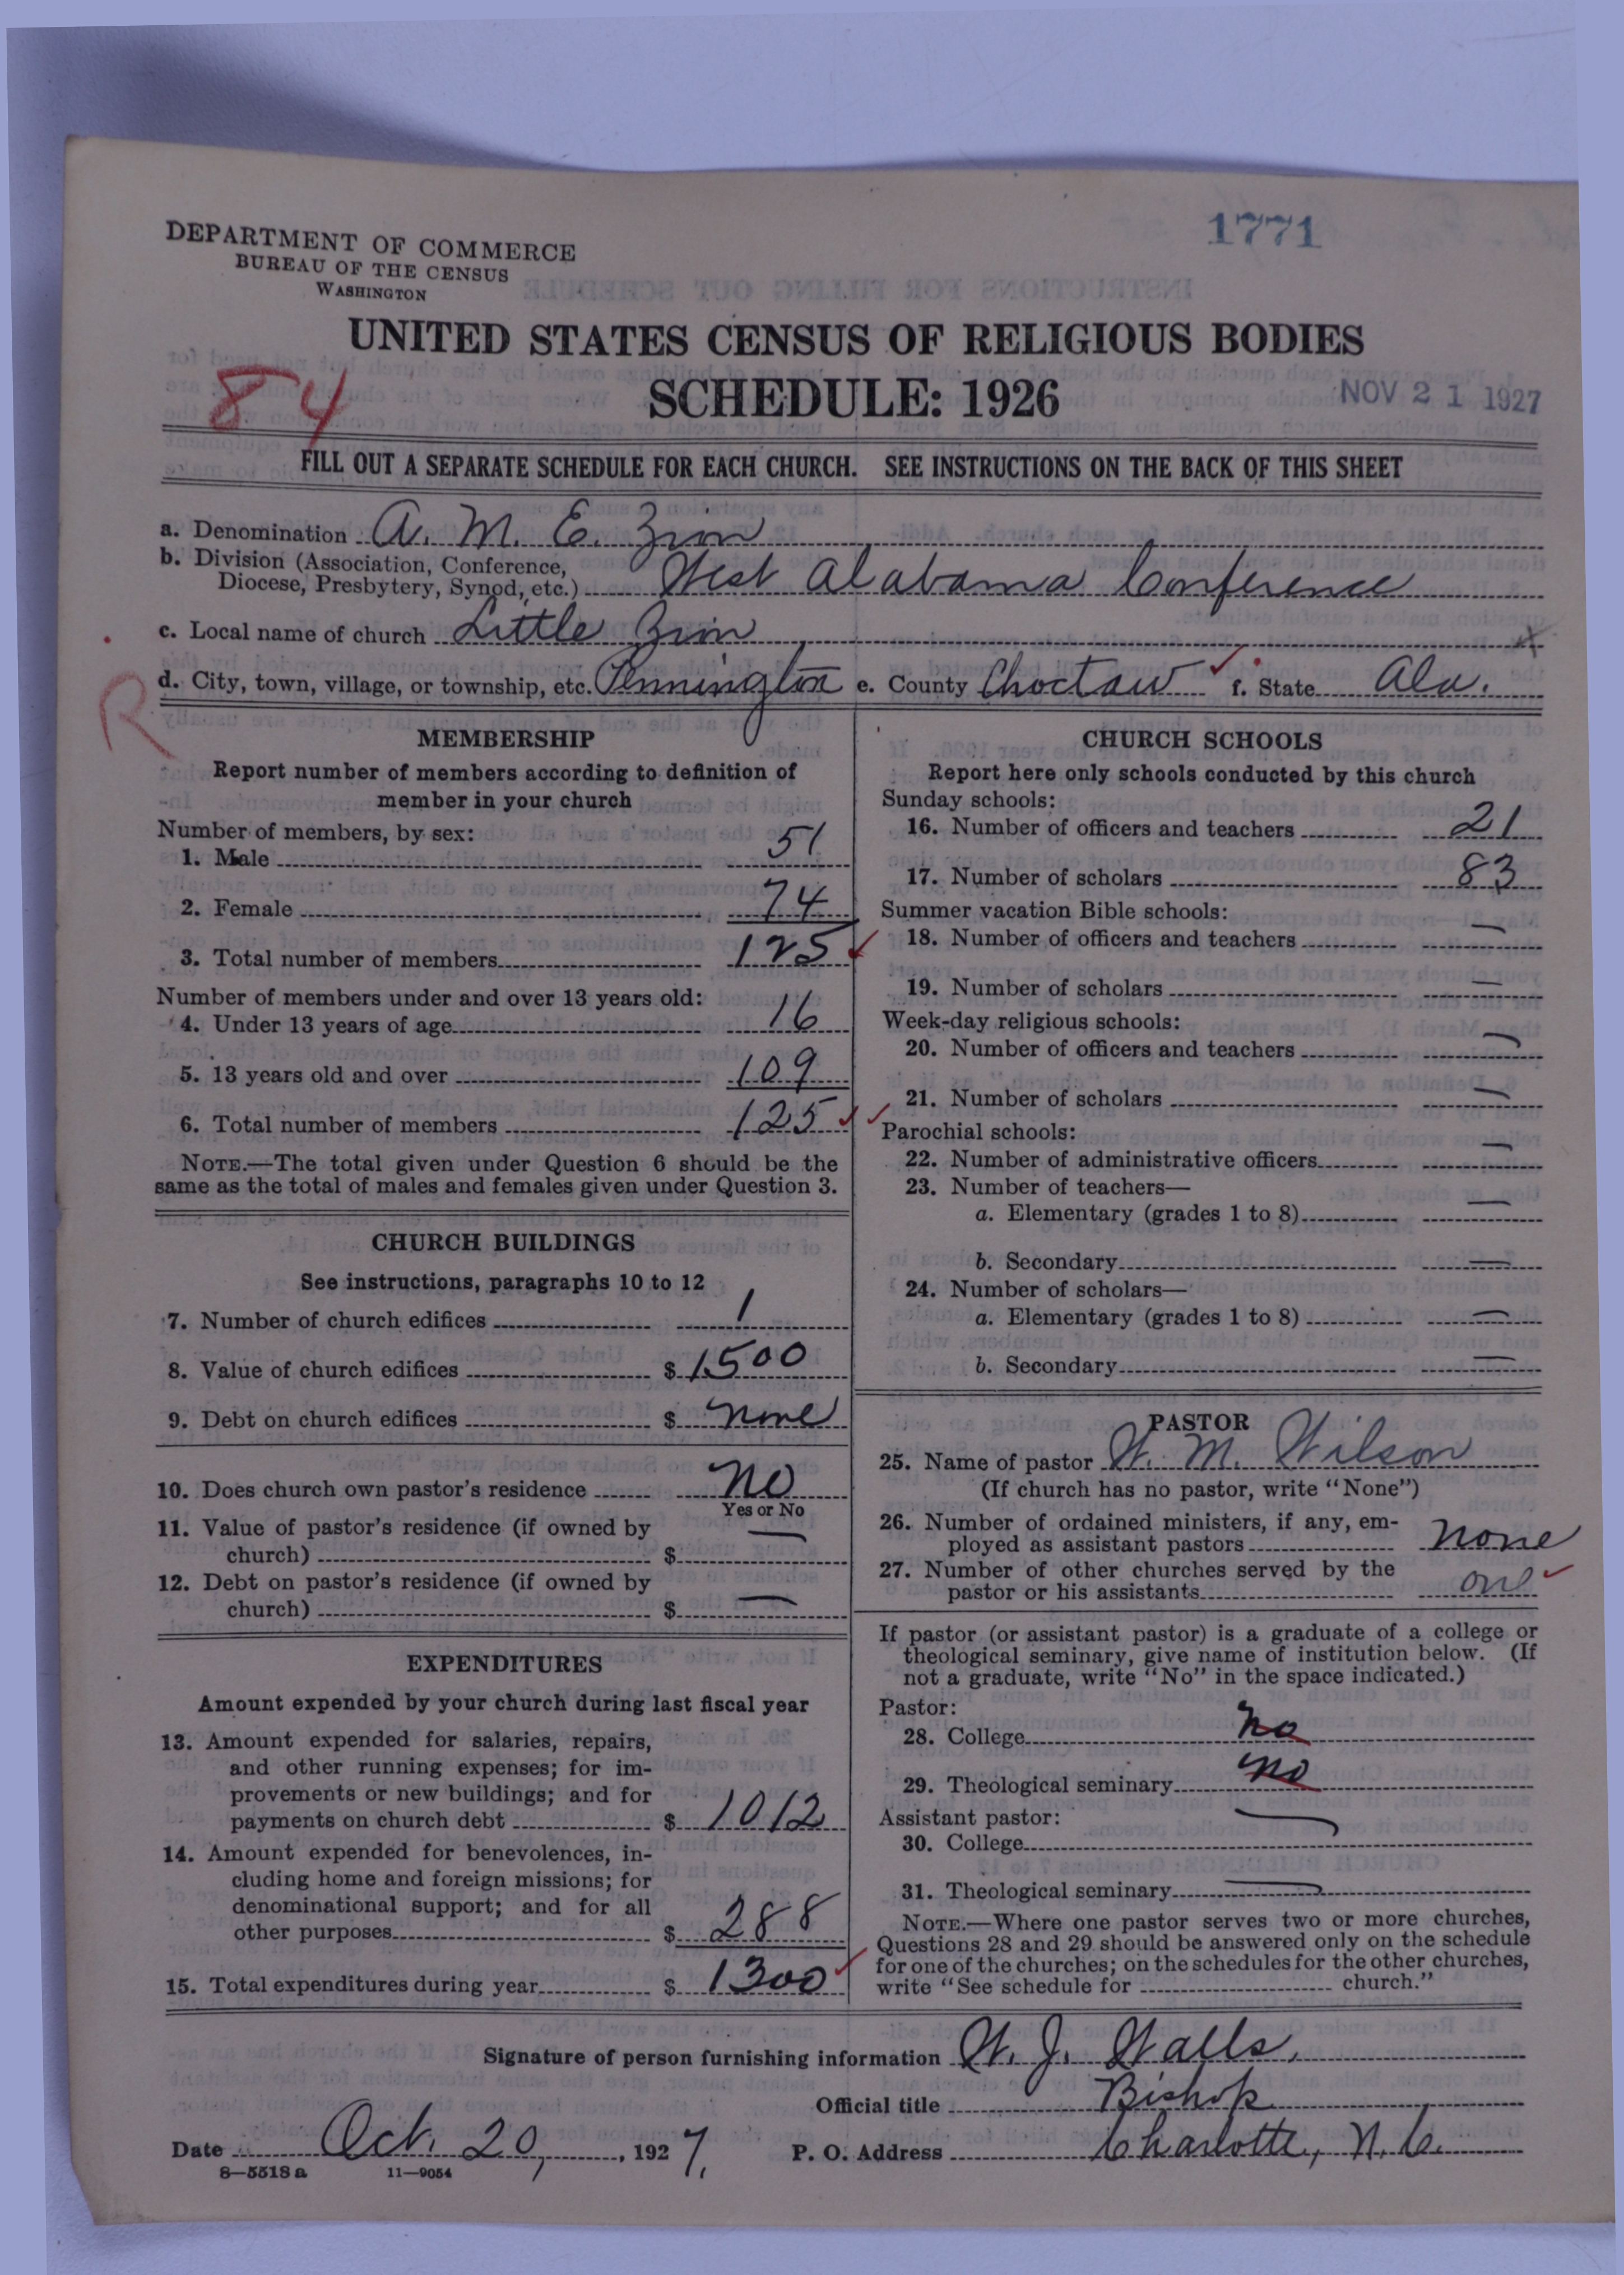 1771
DEPARTMENT OF COMMERCE
BUREAU OF THE CENSUS
WASHINGTON
UNITED STATES CENSUS OF RELIGIOUS BODIES
84
SCHEDULE: 1926
NOV 21 1927
FILL OUT A SEPARATE SCHEDULE FOR EACH CHURCH. SEE INSTRUCTIONS ON THE BACK OF THIS SHEET
a. Denomination A. M. E. Zion
b. Division (Association, Conference,
Diocese, Presbytery, Synod, etc.) West Alabama Conference
c. Local name of church Little Zion
d. City, town, village, or township, etc. Pennington e. County Choctaw f. State Ala.
R
MEMBERSHIP
Report number of members according to definition of
member in your church
Number of members, by sex:
1. Male 51
2. Female 74
3. Total number of members 125
Number of members under and over 13 years old:
4. Under 13 years of age 16
5. 13 years old and over 109
6. Total number of members 125
NOTE.—The total given under Question 6 should be the
same as the total of males and females given under Question 3.
CHURCH BUILDINGS
See instructions, paragraphs 10 to 12
7. Number of church edifices 1
8. Value of church edifices $ 1500
9. Debt on church edifices $ none
10. Does church own pastor's residence No
Yes or No
11. Value of pastor's residence (if owned by
church) $ —
12. Debt on pastor's residence (if owned by
church) $ —
EXPENDITURES
Amount expended by your church during last fiscal year
13. Amount expended for salaries, repairs,
and other running expenses; for im-
provements or new buildings; and for
payments on church debt $ 1012
14. Amount expended for benevolences, in-
cluding home and foreign missions; for
denominational support; and for all
other purposes $ 288
15. Total expenditures during year $ 1300
CHURCH SCHOOLS
Report here only schools conducted by this church
Sunday schools:
16. Number of officers and teachers 21
17. Number of scholars 83
Summer vacation Bible schools:
18. Number of officers and teachers —
19. Number of scholars —
Week-day religious schools:
20. Number of officers and teachers —
21. Number of scholars —
Parochial schools:
22. Number of administrative officers —
23. Number of teachers—
a. Elementary (grades 1 to 8) —
b. Secondary —
24. Number of scholars—
a. Elementary (grades 1 to 8) —
b. Secondary —
PASTOR
25. Name of pastor W. M. Wilson
(If church has no pastor, write "None")
26. Number of ordained ministers, if any, em-
ployed as assistant pastors none
27. Number of other churches served by the
pastor or his assistants one
If pastor (or assistant pastor) is a graduate of a college or
theological seminary, give name of institution below. (If
not a graduate, write "No" in the space indicated.)
Pastor:
28. College no
29. Theological seminary no
Assistant pastor:
30. College —
31. Theological seminary —
NOTE.—Where one pastor serves two or more churches,
Questions 28 and 29 should be answered only on the schedule
for one of the churches; on the schedules for the other churches,
write "See schedule for church."
Signature of person furnishing information W. J. Walls.
Official title Bishop
Date Oct. 20, 1927. P. O. Address Charlotte, N. C.
8—5518 a 11—9054